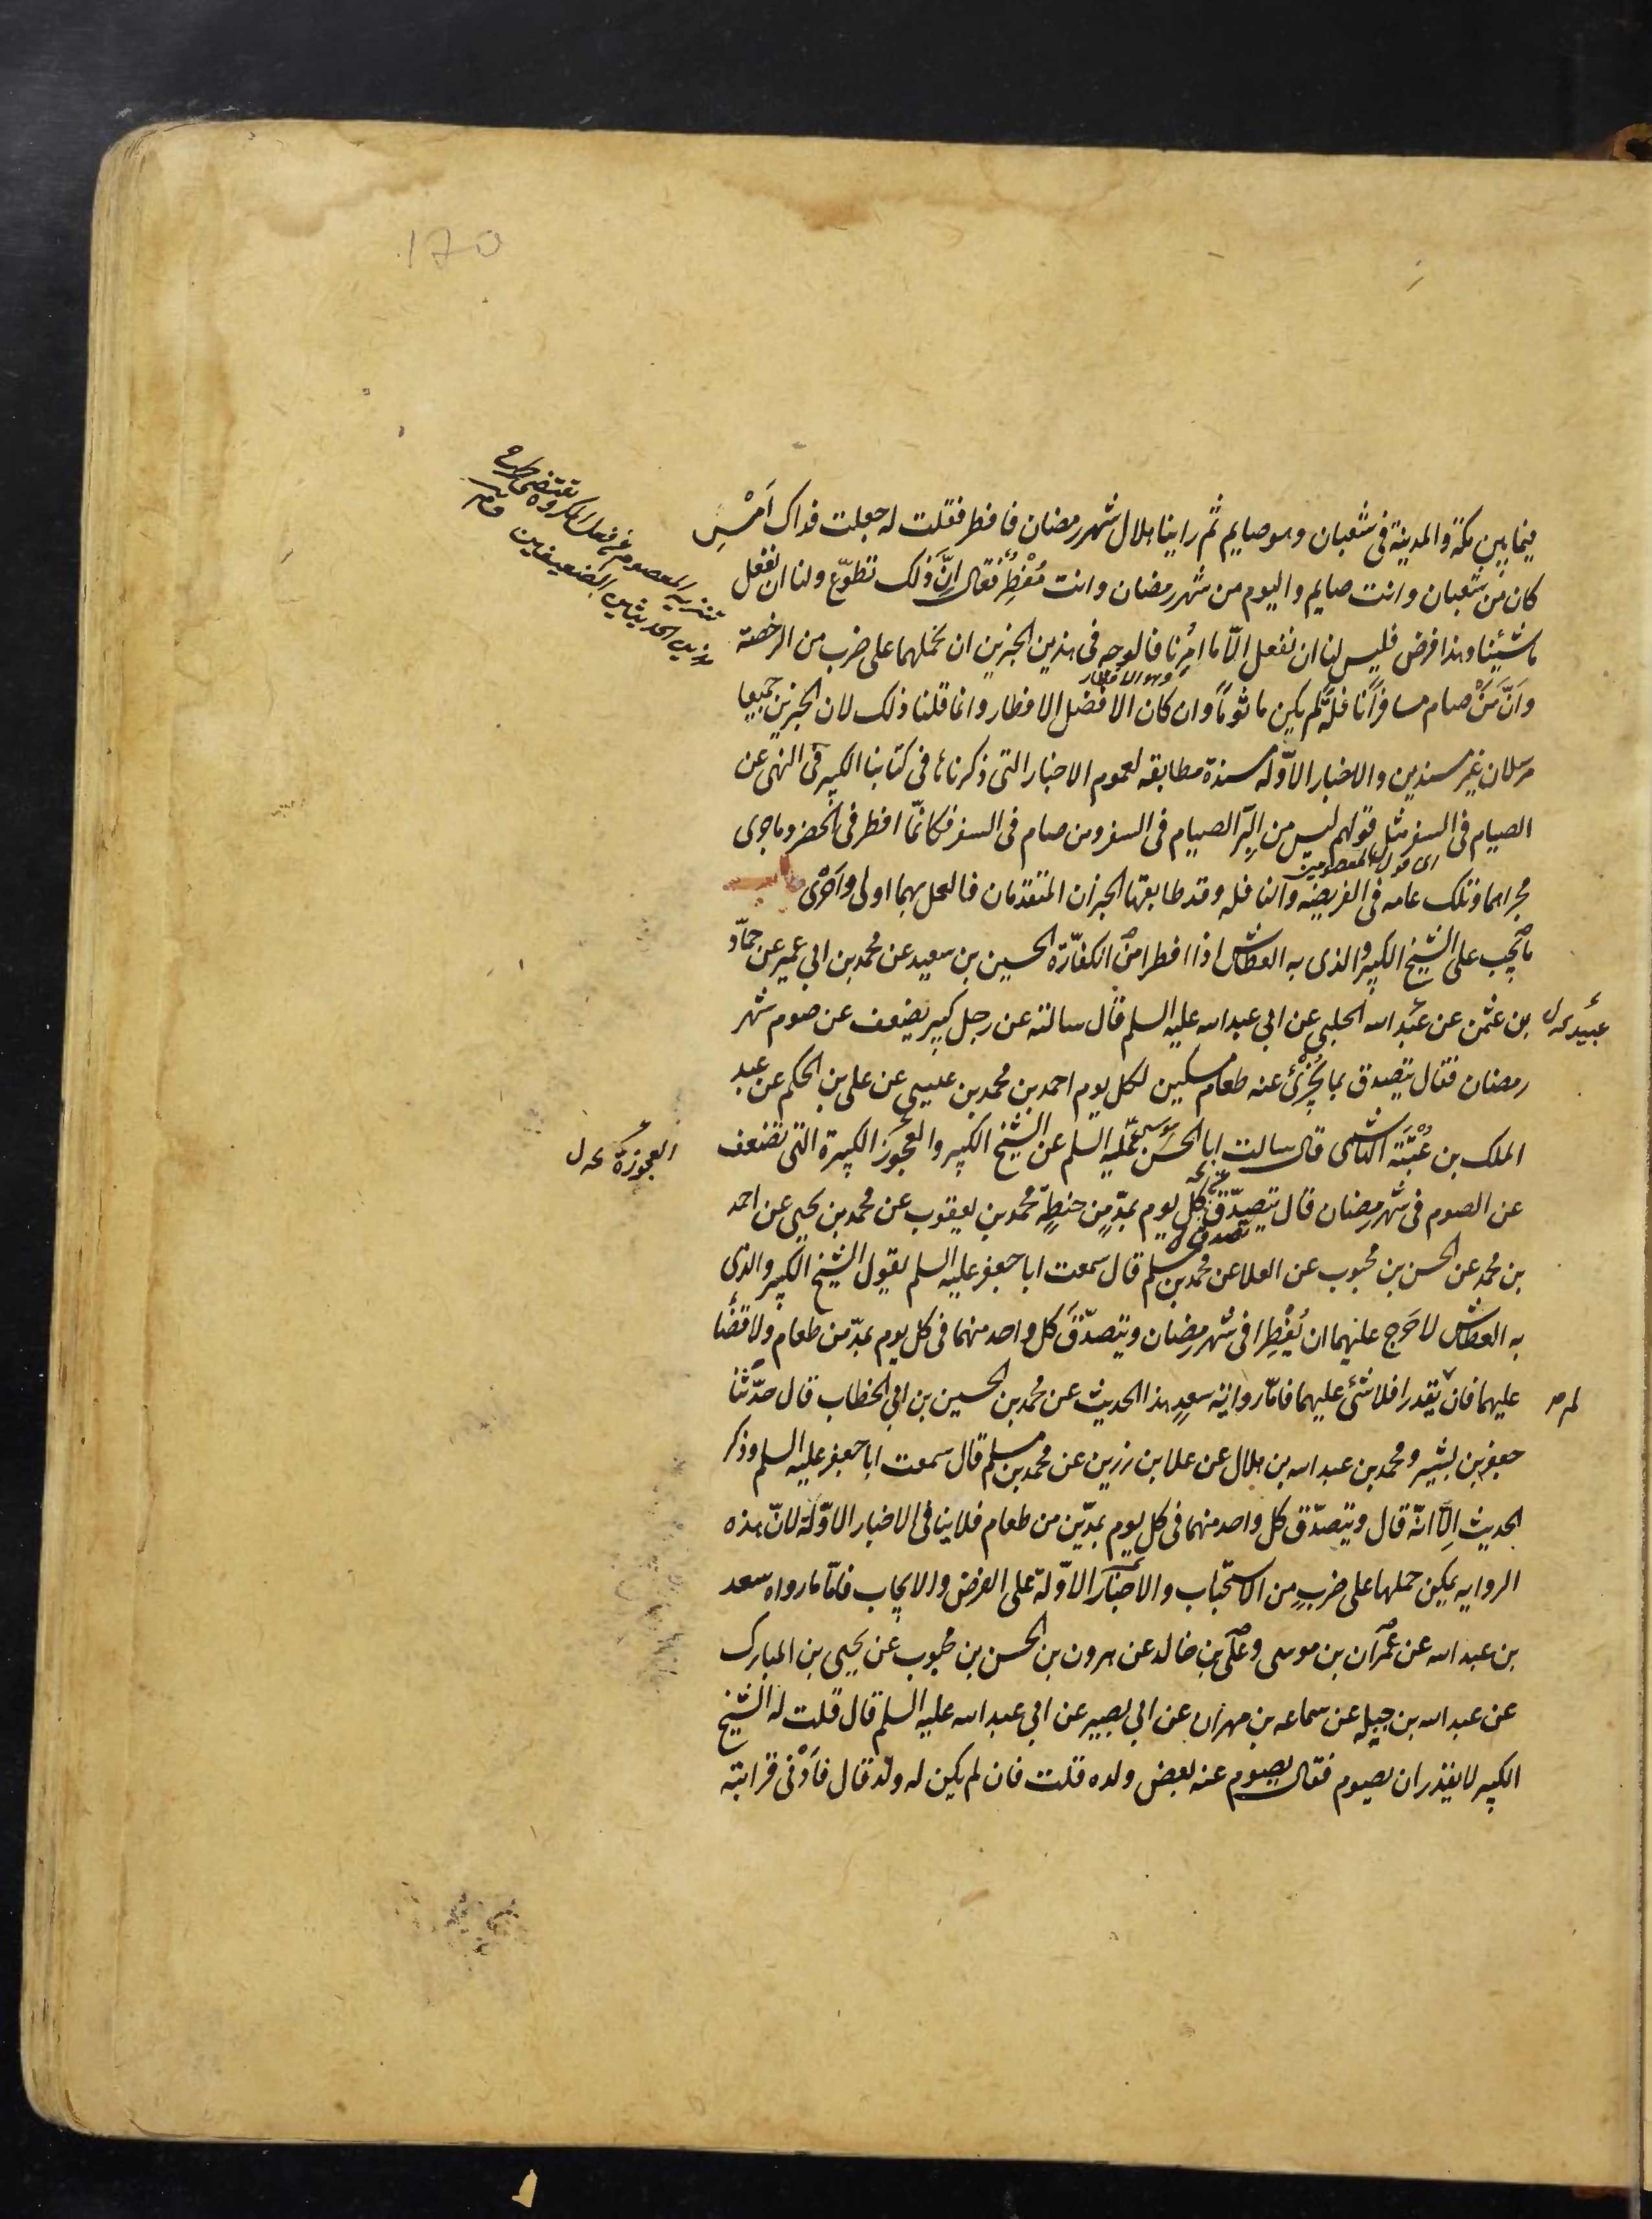 170
فيما بين مكة والمدينة في شعبان وهو صايم ثم راينا هلال شهر رمضان فافطر فقلت له جعلت فداك اَمْسِ
كان من شعبان وانت صايم واليوم من شهر رمضان وانت مُفْطِرٌ فقال اِنَّ ذلك تطوّع ولنا ان نفعل
ما شئينا وهذا فرض فليس لنا ان نفعل الّا ما اُمِرْنا فالوجه في هذين الخبرين ان نحملهما على ضرب من الرخصة
وهو الافطار
واَنَّ مَنْ صام مسافراً نافلةً لم يكن ماثوماً وان كان الافضل الافطار وانما قلنا ذلك لان الخبرين جميعا
مرسلان غير مسندين والاخبار الاوّله مسندة مطابقه لعموم الاخبار التى ذكرناها في كتابنا الكبير فى النهى عن
الصيام فى السفر مثل قولهم ليس من البِرّ الصيام فى السفر ومن صام فى السفر فكانّما افطر فى الحضر وما جرى
اى قول المعصومين
مجراهما وتلك عامه فى الفريضه والنافله وقد طابقها الخبران المتقدمان فالعمل بهما اولى واَحْرى
ما يجب على الشيخ الكبير والذى به العطاش اذا افطرا من الكفّارة الحسين بن سعيد عن محمد بن ابي عمير عن حمّاد
بن عثمن عن عبد الله الحلبي عن ابي عبد الله عليه السلم قال سالته عن رجل كبير يضعف عن صوم شهر
عبيد
رمضان فقال يتصدق بما يُجْزِئ عنه طعام مسكين لكل يوم احمد بن محمد بن عيسى عن على بن الحكم عن عبد
الملك بن عُتْبَة الهاشمى قال سالت ابا الحسن موسى عليه السلم عن الشيخ الكبير والعجوز الكبيرة التى تضعف
العجوزة
عن الصوم فى شهر رمضان قال يتصدّق كل يوم بمدٍّ من حنطةٍ محمد بن يعقوب عن محمد بن يحيى عن احمد
تصدق
بن محمد عن الحسن بن محبوب عن العلا عن محمد بن مسلم قال سمعت ابا جعفر عليه السلم يقول الشيخ الكبير والذى
به العطاش لا حَرَج عليهما ان يُفْطِرا فى شهر رمضان ويتصدّقَ كل واحد منهما فى كل يوم بمدّ من طعام ولا قضَا
عليهما فان يقدرا فلا شئ عليهما فامّا رواية سعدٍ هذا الحديث عن محمد بن الحسين بن ابي الخطاب قال حدّثنا
لم
جعفر بن بشير ومحمد بن عبد الله بن هلال عن علا بن رزين عن محمد بن مسلم قال سمعت ابا جعفر عليه السلم وذكر
الحديث اِلّا انّه قال ويتصدّق كل واحد منهما فى كل يوم بمدّين من طعام فلا ينافى الاخبار الاوّلة لانّ هذه
الروايه يمكن حملها على ضربٍ من الاستحباب والاخبار الاوّلة على الفرض والايجاب فامّا ما رواه سعد
بن عبد الله عن عمران بن موسى وعلى بن خالد عن هرون بن الحسن بن محبوب عن يحيى بن المبارك
عن عبد الله بن جبله عن سماعه بن مهران عن ابي بصير عن ابي عبد الله عليه السلم قال قلت له الشيخ
الكبير لا يقدر ان يصوم فقال يصوم عنه بعض ولده قلت فان لم يكن له ولد قال فاَدْنى قرابته
تنزيه المعصوم عن فعل المكروه
الحديثين الضعيفين